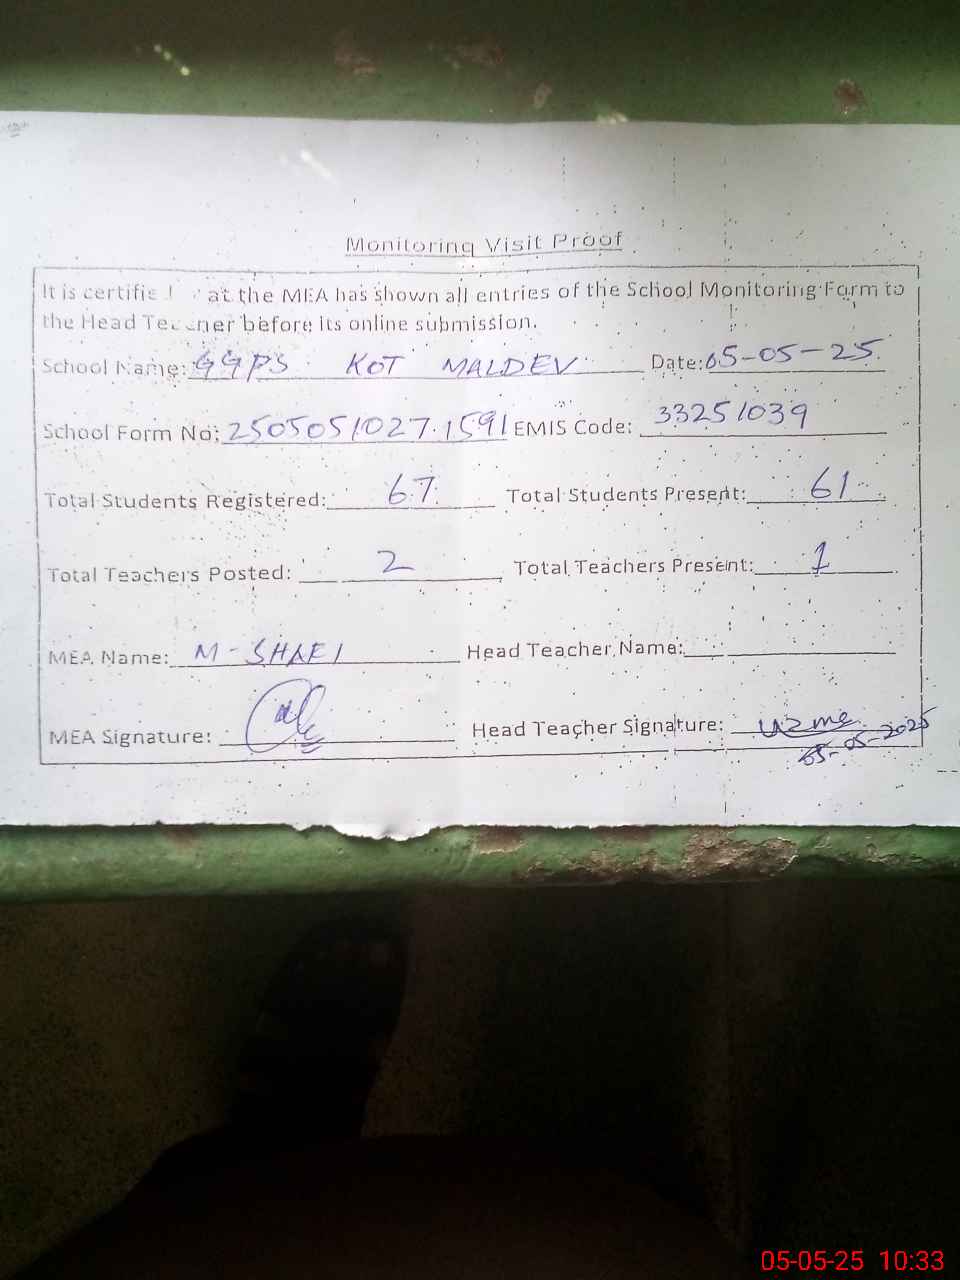 Monitoring Visit Proof
It is certified that the MEA has shown all entries of the School Monitoring Form to
the Head Teacher before its online submission.
School Name: GGPS KOT MALDEV Date: 05-05-25
School Form No: 2505051027.1591 EMIS Code: 33251039
Total Students Registered: 67 Total Students Present: 61
Total Teachers Posted: 2 Total Teachers Present: 1
MEA Name: M-SHAFI Head Teacher Name:
MEA Signature: Head Teacher Signature: uzma
05-05-2025
05-05-25 10:33